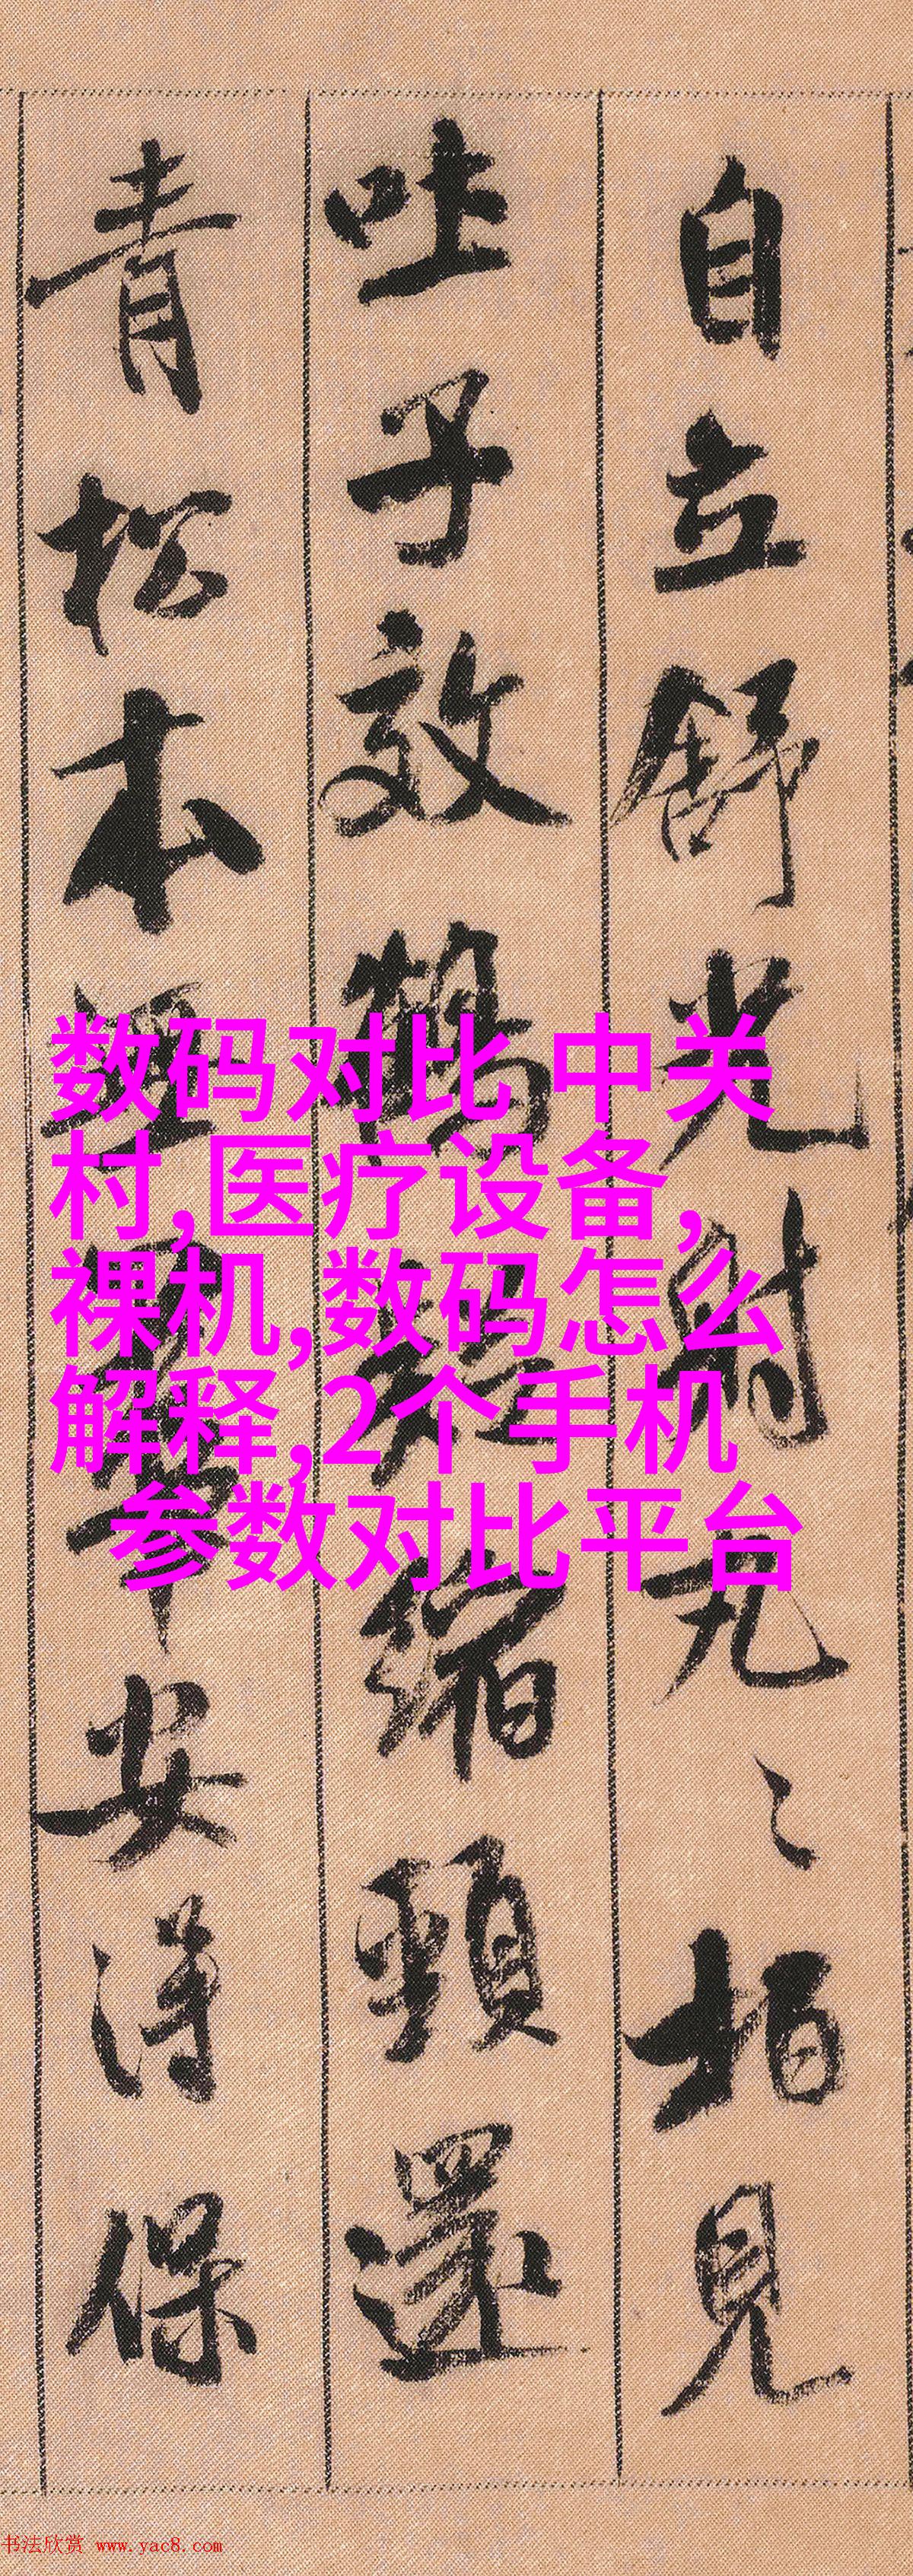 自立舒光射丸〻柏見
吐子效鶴疑縮頸還
青松本無華安得保
数码对比 中关
村,医疗设备,
裸机,数码怎么
解释,2个手机
参数对比平台
书法欣赏 www.yac8.com